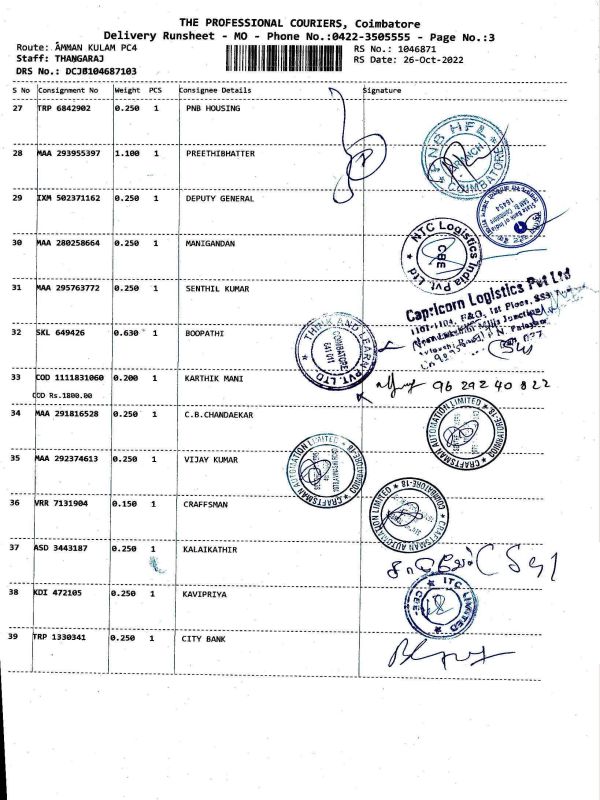 THE PROFESSIONAL COURIERS, Coimbatore
Delivery Runsheet - MO - Phone No.:0422-3505555 - Page No.:3
Route: AMMAN KULAM PC4 RS No.: 1046871
Staff: THANGARAJ RS Date: 26-Oct-2022
DRS No.: DCJB104687103
S No Consignment No Weight PCS Consignee Details Signature
27 TRP 6842902 0.250 1 PNB HOUSING
PNB HFL BRANCH COIMBATORE
28 MAA 293955397 1.100 1 PREETHIBHATTER
29 IXM 502371162 0.250 1 DEPUTY GENERAL
State Bank of India
16454
30 MAA 280258664 0.250 1 MANIGANDAN
NTC Logistics India Pvt. Ltd CBE
31 MAA 295763772 0.250 1 SENTHIL KUMAR
Capricorn Logistics Pvt Ltd
1101-1104, F&O, 1st Floor,
32 SKL 649426 0.630 1 BOOPATHI
THINK AND LEARN PVT. LTD. COIMBATORE 641 011
33 COD 1111831060 0.200 1 KARTHIK MANI
96 292 40 822
COD Rs.1800.00
34 MAA 291816528 0.250 1 C.B.CHANDAEKAR
CRAFTSMAN AUTOMATION LIMITED COIMBATORE-18
35 MAA 292374613 0.250 1 VIJAY KUMAR
CRAFTSMAN AUTOMATION LIMITED COIMBATORE-18
36 VRR 7131904 0.150 1 CRAFFSMAN
CRAFTSMAN AUTOMATION LIMITED COIMBATORE-18
37 ASD 3443187 0.250 1 KALAIKATHIR
38 KDI 472105 0.250 1 KAVIPRIYA
ITC LIMITED CBE-
39 TRP 1330341 0.250 1 CITY BANK